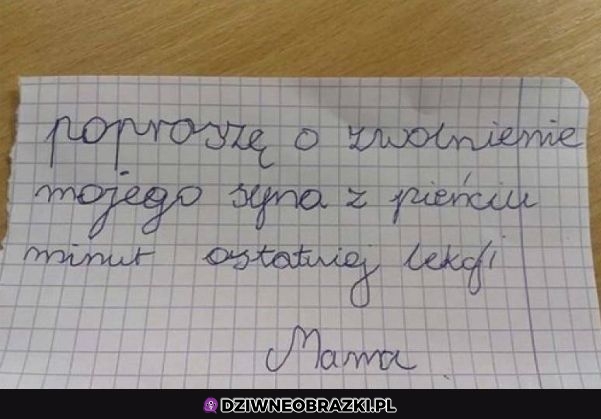 poproszę o zwolnienie
mojego syna z pieńciu
minut ostatniej lekcji
Mama
DZIWNEOBRAZKI.PL